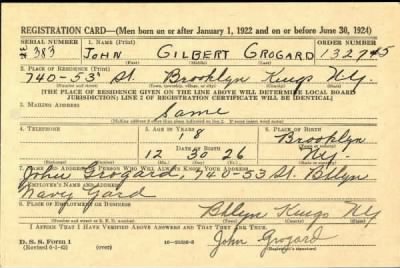 REGISTRATION CARD—(Men born on or after January 1, 1922 and on or before June 30, 1924)
SERIAL NUMBER 1. NAME (Print) ORDER NUMBER
383 JOHN GILBERT GROGARD 13274 5
(First) (Middle) (Last)
2. PLACE OF RESIDENCE (Print)
740-53 St. Brooklyn Kings Ny.
(Number and street) (Town, township, village, or city) (County) (State)
[THE PLACE OF RESIDENCE GIVEN ON THE LINE ABOVE WILL DETERMINE LOCAL BOARD
JURISDICTION; LINE 2 OF REGISTRATION CERTIFICATE WILL BE IDENTICAL]
3. MAILING ADDRESS
Same
[Mailing address if other than place indicated on line 2. If same insert word same]
4. TELEPHONE 5. AGE IN YEARS 6. PLACE OF BIRTH
18 Brooklyn
DATE OF BIRTH
12 30 26 Ny.
(Mo.) (Day) (Yr.)
7. NAME AND ADDRESS OF PERSON WHO WILL ALWAYS KNOW YOUR ADDRESS
John Grogard 740-53 St. Bklyn
8. EMPLOYER'S NAME AND ADDRESS
Navy Yard
9. PLACE OF EMPLOYMENT OR BUSINESS
Bklyn Kings Ny
(Number and street or R. F. D. number) (Town) (County) (State)
I AFFIRM THAT I HAVE VERIFIED ABOVE ANSWERS AND THAT THEY ARE TRUE.
D. S. S. Form 1
(Revised 6-1-42) (over)
John Grogard
(Registrant's signature)